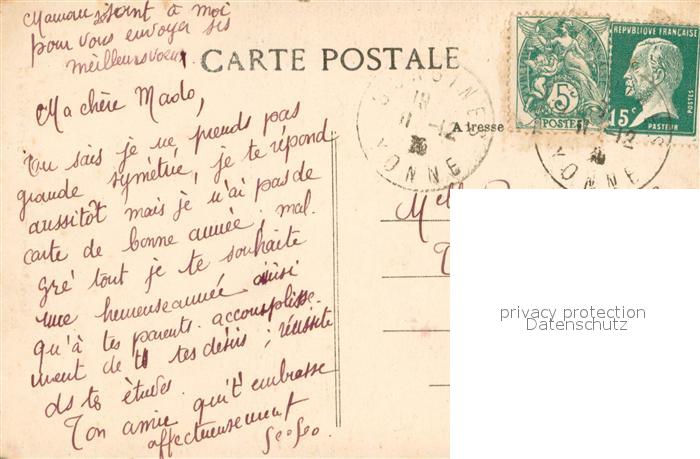 Maman se joint à moi
pour vous envoyer ses
meilleurs voeux
CARTE POSTALE
RÉPUBLIQUE FRANÇAISE
POSTES
5c
POSTES
15c
PASTEUR
18
11-12
YONNE
11-12
YONNE
Adresse
Ma chère Mado,
Tu sais je ne prends pas
grande symétrie, je te répond
aussitôt mais je n'ai pas de
carte de bonne année, mal.
gré tout je te souhaite
une heureuse année ainsi
qu'à tes parents. accomplisse.
ment de tes désirs ; réussite
ds tes études.
Ton amie qui t'embrasse
affectueusement
GeoGeo
Melle
privacy protection
Datenschutz